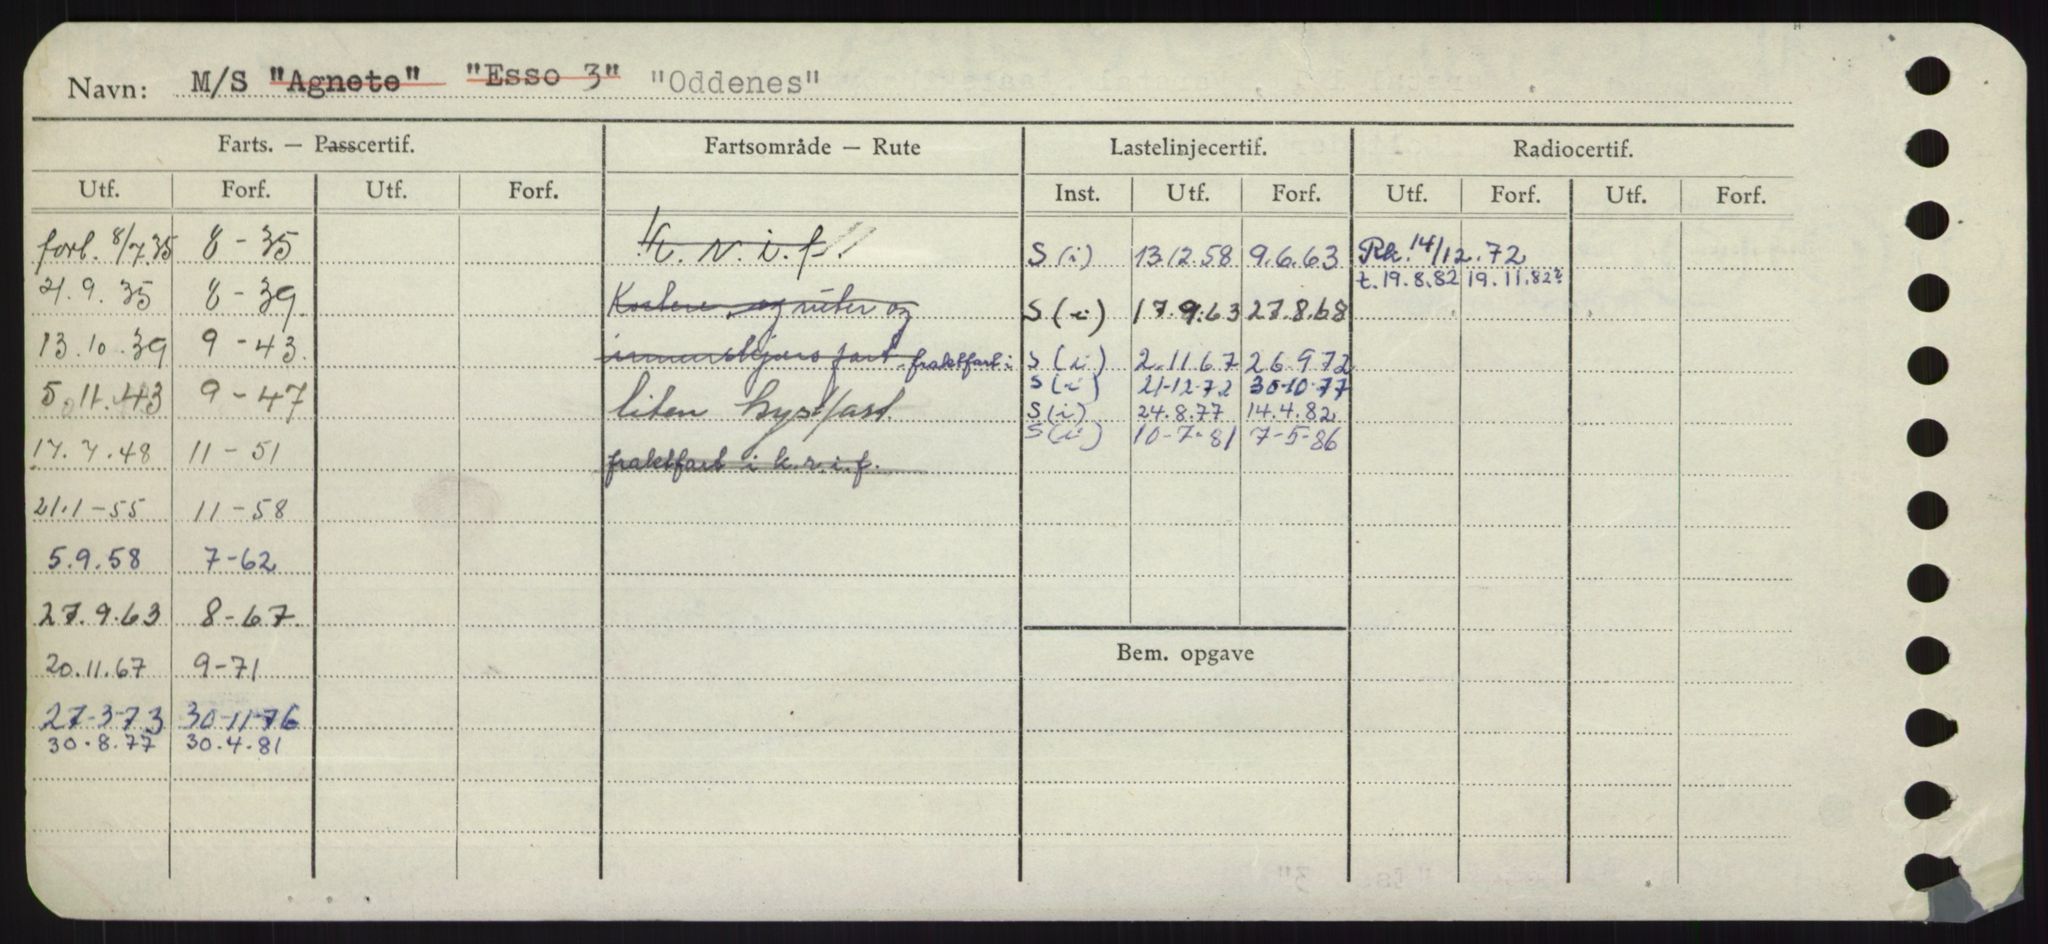 Navn: M/S "Agnete" "Esso 3" "Oddenes"
Farts. — Passcertif. Fartsområde — Rute Lastelinjecertif. Radiocertif.
Utf. Forf. Utf. Forf. Inst. Utf. Forf. Utf. Forf. Utf. Forf.
forl. 8/7.35 8 - 35 K. r. i. f. S (i) 13.12.58 9.6.63 Rk. 14/12.72
t. 19.8.82 19.11.82
21.9.35 8 - 39 og ruter og S (i) 17.9.63 27.8.68
13.10.39 9 - 43. innenskjærs fart fraktfart i S (i) 2.11.67 26.9.72
S (i) 21-12-72 30-10-77
5.11.43 9 - 47 liten kystfart. S (i) 24.8.77 14.4.82
S (i) 10-7-81 7-5-86
17.7.48 11 - 51 fraktfart i k.r.i.f.
21.1-55 11 - 58
5.9.58 7-62
27.9.63 8-67.
20.11.67 9-71 Bem. opgave
27-3-73 30-11-76
30.8.77 30.4.81